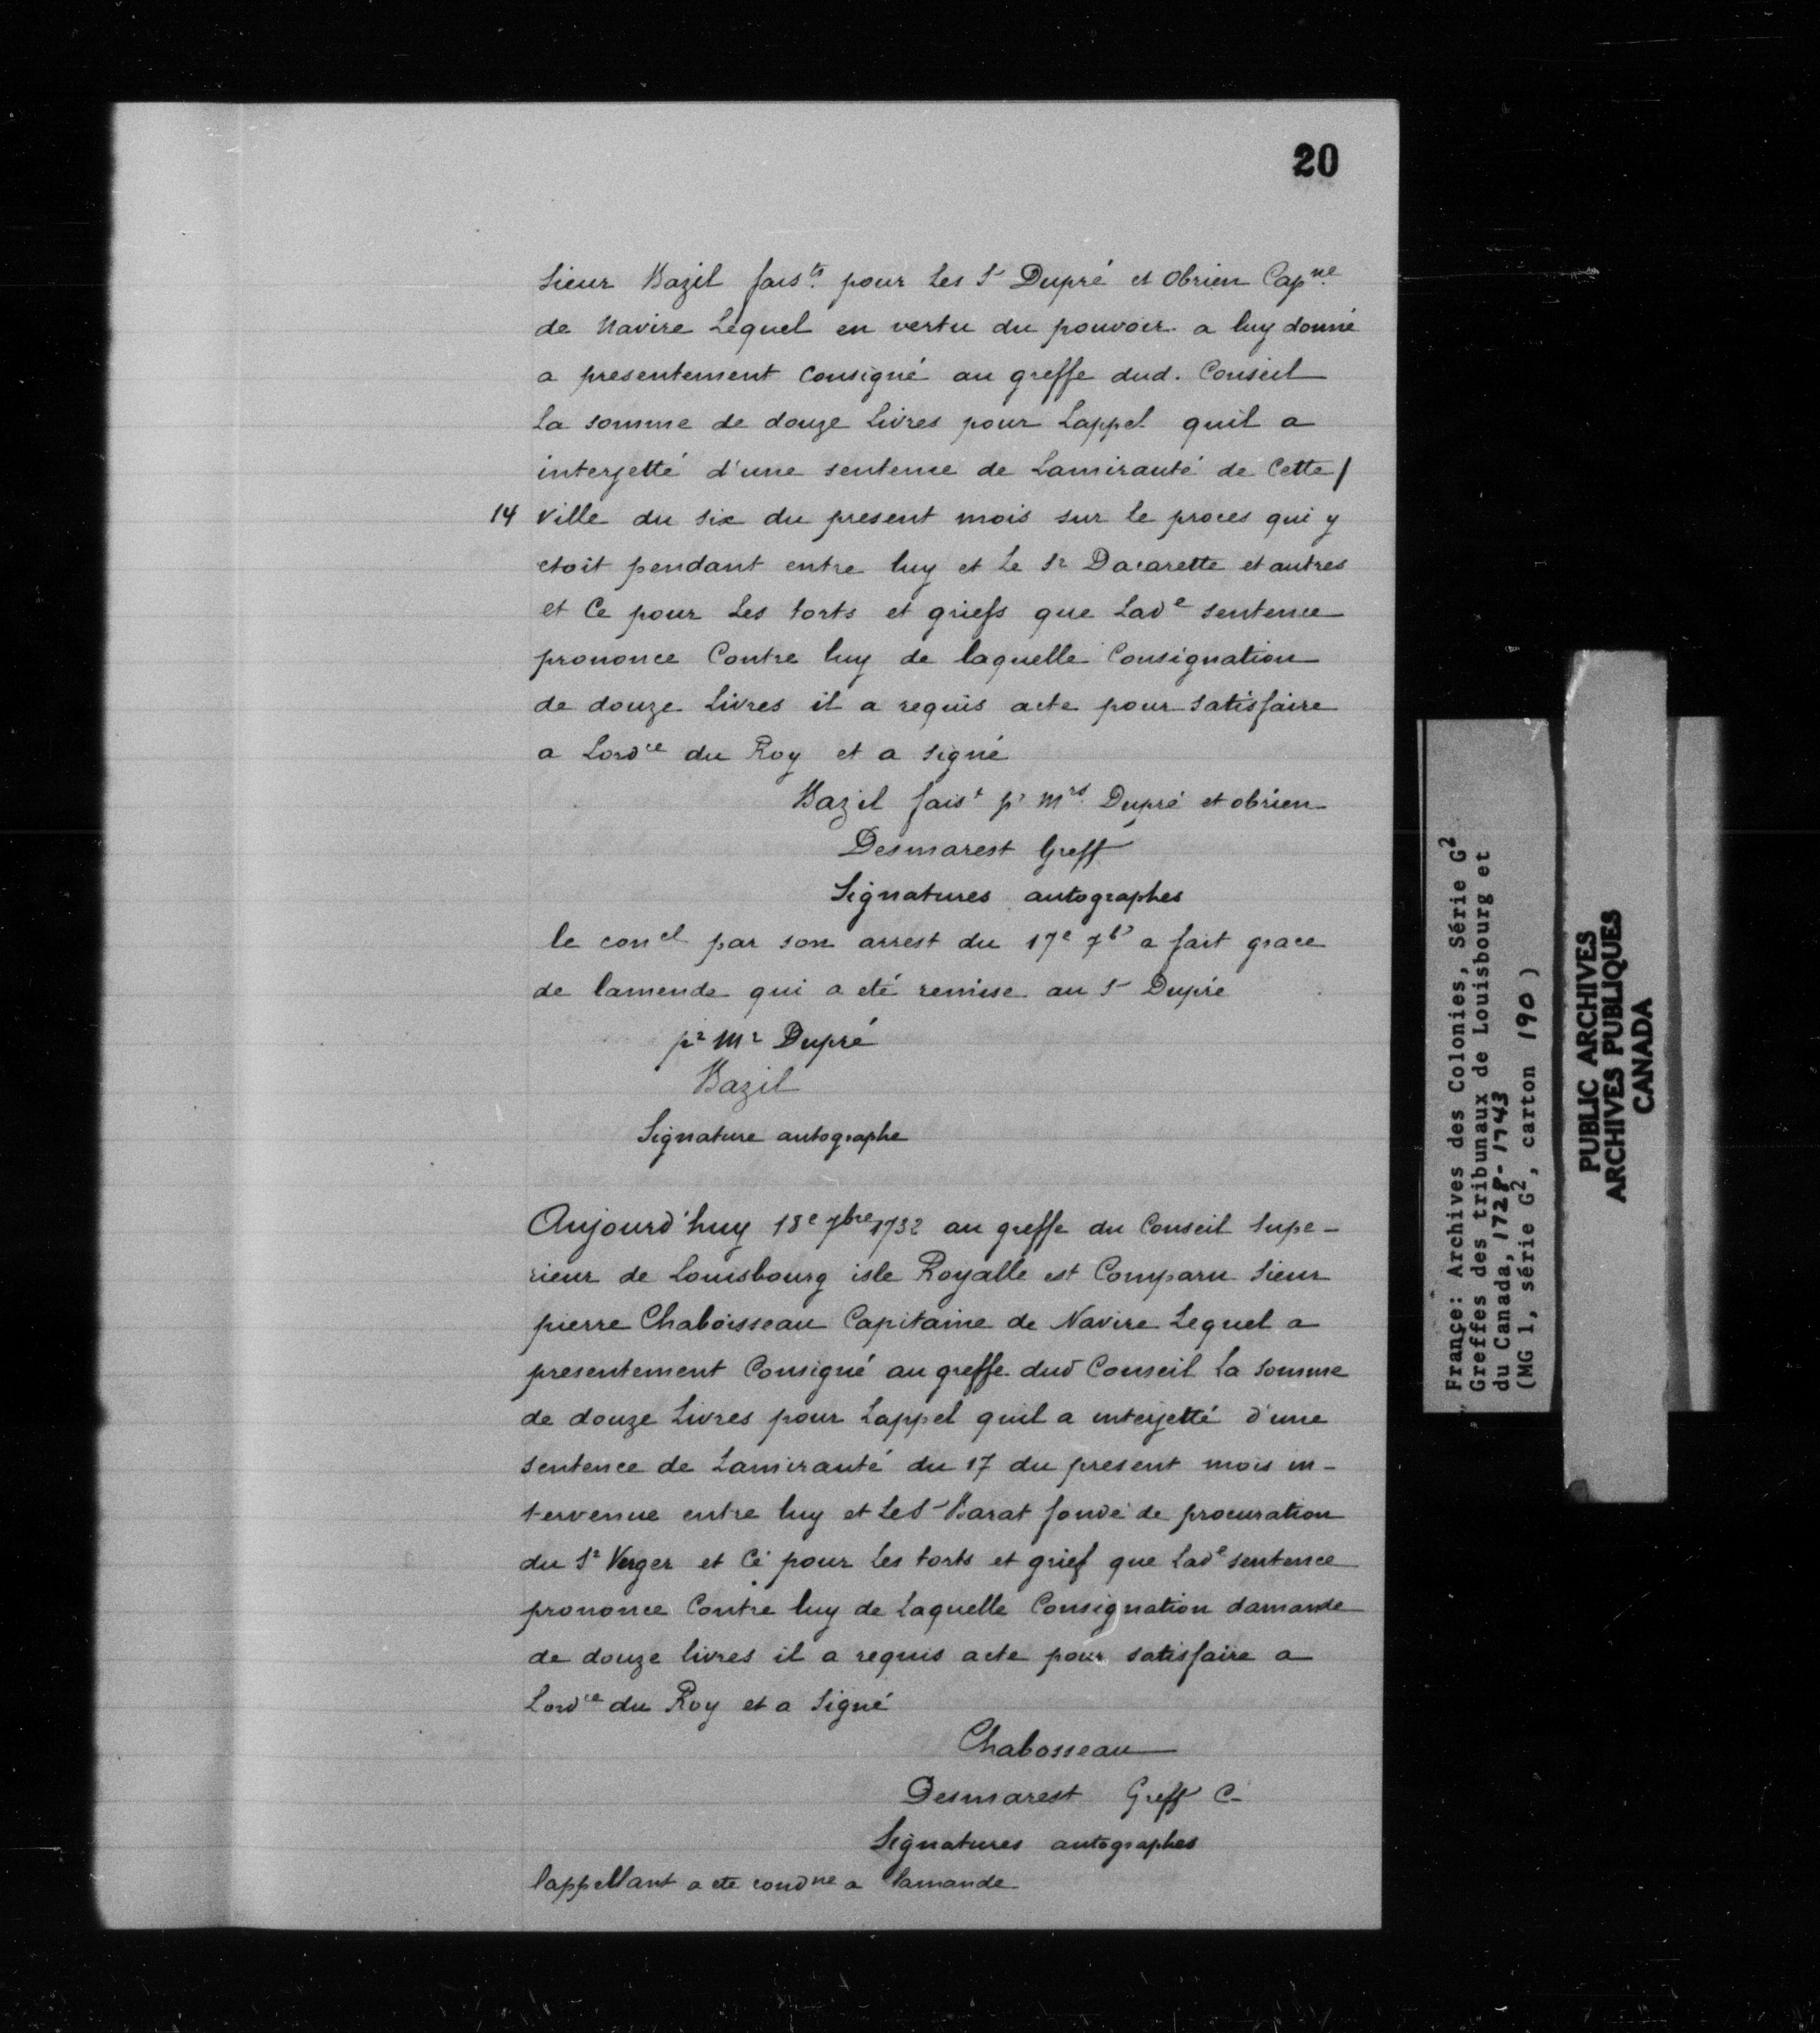 20
Sieur Bazil faist. pour Les Sr Dupré et Obrien Capne.
de Navire Lequel en vertu du pouvoir a luy donné
a presentement Consigné au greffe dud. Conseil
La somme de douze Livres pour Lappel quil a
interjetté d'une sentence de Lamirauté de Cette/
14 Ville du six du present mois sur le proces qui y
etoit pendant entre luy et Le Sr Dacarette et autres
et Ce pour Les torts et griefs que Lade sentence
prononce Contre luy de laquelle Consignation
de douze Livres il a requis acte pour satisfaire
a Lordce du Roy et a signé
Bazil faist pr Mrs Dupré et obrien
Desmarest Greff
Signatures autographes
le concl par son arrest du 17e 7bre a fait grace
de lamende qui a eté remise au Sr Dupré
pr Mr Dupré
Bazil
Signature autographe
Aujourd'huy 18e 7bre 1732 au greffe du Conseil Supe-
rieur de Louisbourg isle Royalle est Comparu Sieur
pierre Chaboisseau Capitaine de Navire Lequel a
presentement Consigné au greffe dud Conseil La Somme
de douze Livres pour Lappel quil a interjetté d'une
sentence de Lamirauté du 17 du present mois in-
tervenue entre luy et Le Sr Barat fondé de procuration
du Sr Verger et Cé pour Les torts et grief que Lade sentence
prononce Contre luy de Laquelle Consignation damande
de douze livres il a requis acte pour satisfaire a
Lordce du Roy et a Signé
Chabosseau
Desmarest Greff C-
Signatures autographes
lappellant a ete condne a lamande
France: Archives des Colonies, Série G2
Greffes des tribunaux de Louisbourg et
du Canada, 1728-1743
(MG 1, série G2, carton 190)
PUBLIC ARCHIVES
ARCHIVES PUBLIQUES
CANADA